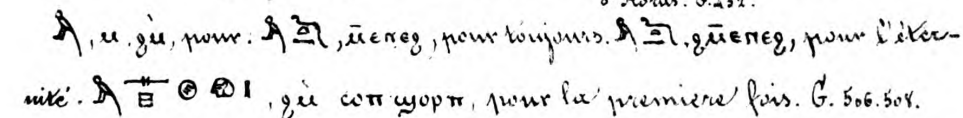 Horus. G. 232.
, ⲛ, ϩⲛ̀, pour. , ⲛ̄ⲉⲛⲉϩ, pour toujours. , ϩⲛ̄ⲉⲛⲉϩ, pour l'éter-
nité. , ϩⲛ̀ ⲥⲟⲡ ϣⲟⲣⲡ, pour la première fois. G. 506. 508.